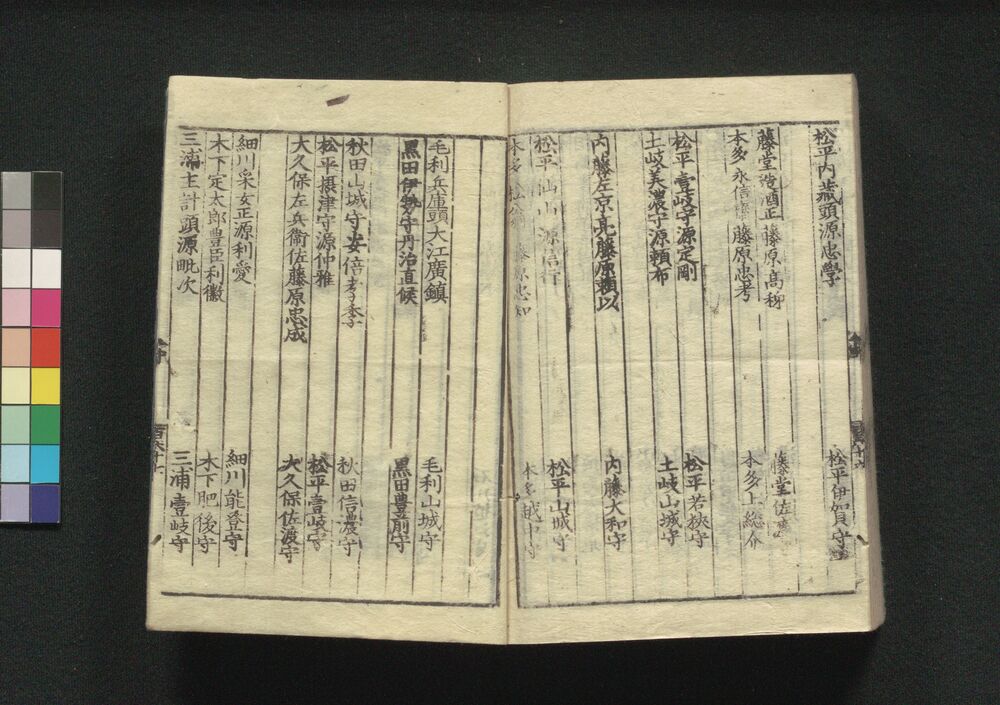 松平内藏頭源忠學
松平伊賀守
藤堂 酒正藤原高
藤堂佐渡
本多 永信 藤原忠考
本多上総介
松平壹岐守源定剛
松平若狹守
土岐美濃守源賴布
土岐山城守
内藤左京亮藤原賴以
内藤大和守
松平仙山 源信行
松平山城守
本多 藤原忠知
本多越中守
毛利兵庫頭大江廣鎮
毛利山城守
黒田伊勢守丹治直候
黒田豊前守
秋田山城守安倍孝季
秋田信濃守
松平攝津守源仲雅
松平壹岐守
大久保左兵衞佐藤原忠成
大久保佐渡守
細川采女正源利愛
細川能登守
木下定太郎豊臣利徽
木下肥後守
三浦主計頭源毗次
三浦壹岐守